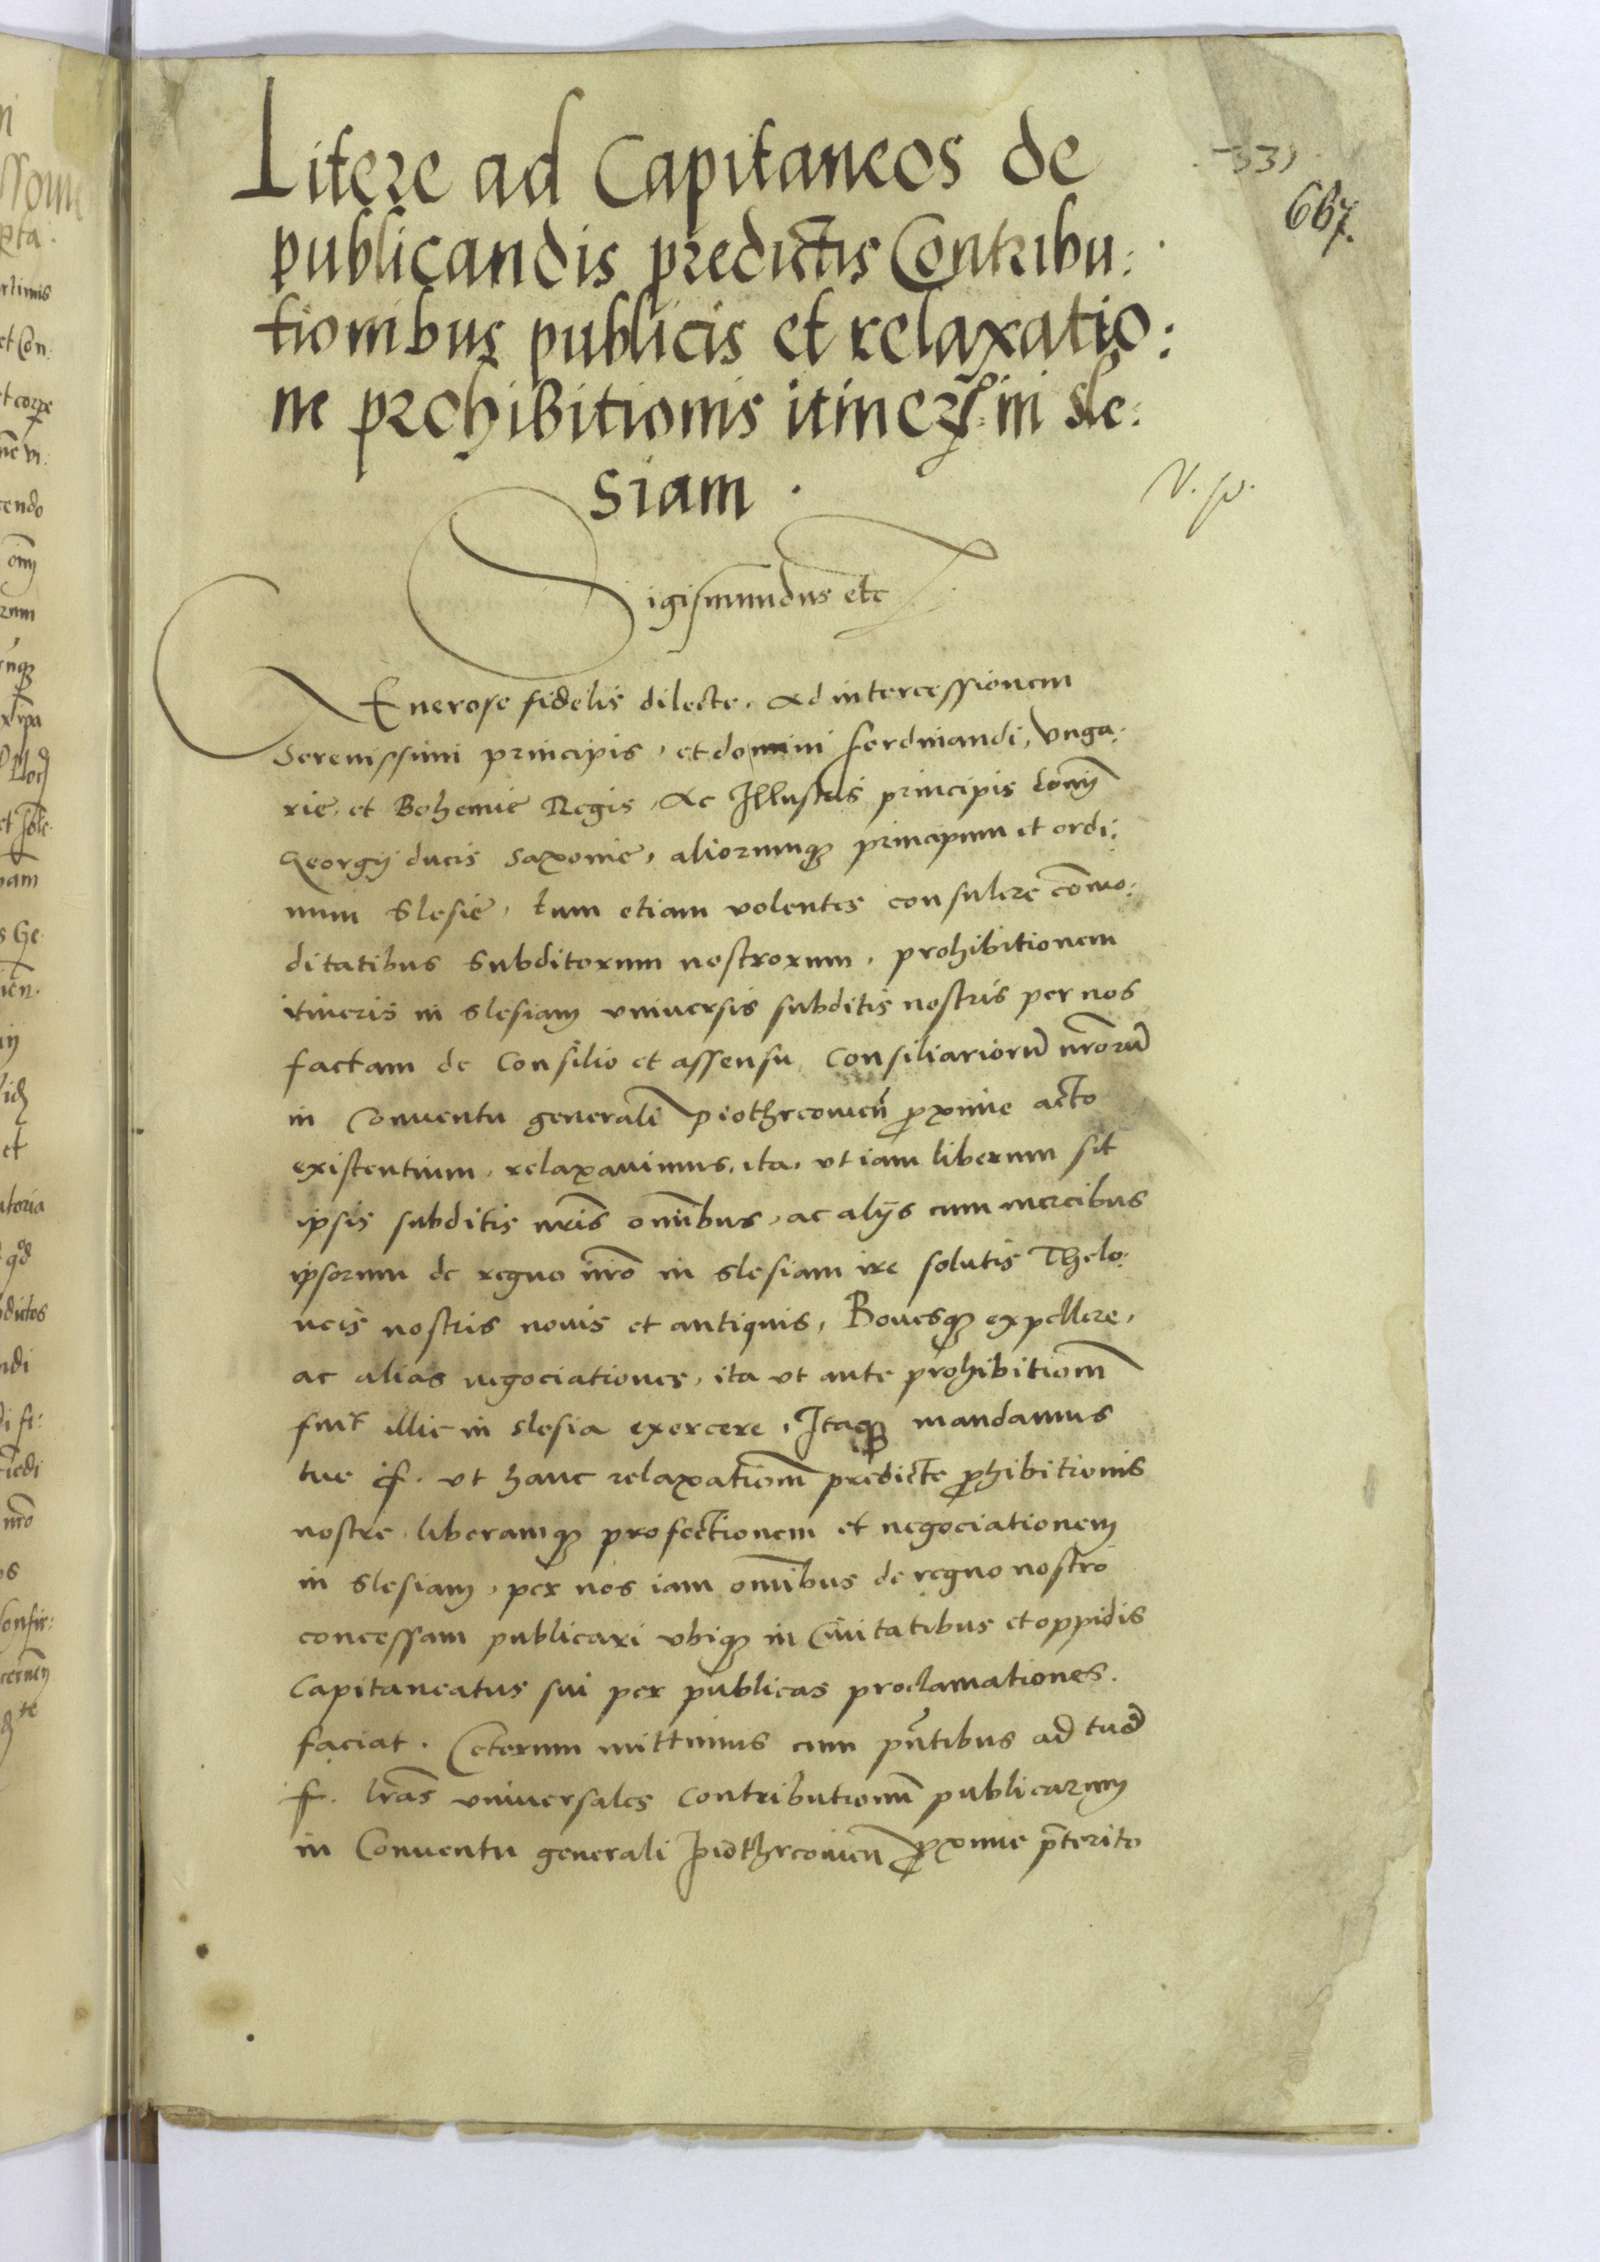 Litere ad Capitaneos de
publicandis predictis Contribu:
tionibus publicis et relaxatio:
ne prohibitionis itinerꝝ in Sle:
siam .
667.
Sigismundus etc
GEnerose fidelis dilecte. Ad intercessionem
Serenissimi principis, et domini Ferdinandi, Unga:
rie, et Bohemie Regis, Ac Illustris principis domi͞
Georgij ducis Saxonie, aliorumqꝫ principum et ordi:
num Slesie, tum etiam volentes consulere com̄o:
ditatibus Subditorum nostrorum, prohibitionem
itineris in Slesiam vniuersis subditis nostris per nos
factam de Consilio et assensu Consiliariorū nr̄orū
in Conuentu generali Piothrcouieñ ꝓxime acto
existentium, relaxauimus, ita, vt iam liberum sit
ipsis subditis nr̄is om̄ibus, ac alijs cum mercibus
ipsorum de regno nr̄o in Slesiam ire solutis Thelo:
neis nostris nouis et antiquis, Bouesqꝫ expellere,
ac alias negociationes, ita vt ante prohibitiom̄
fuit illic in Slesia exercere, Itaqꝫ mandamus
tue f. vt hanc relaxatiom̄ predicte ꝓhibitionis
nostre liberamqꝫ profectionem et negociationem
in Slesiam, per nos iam om̄ibus de regno nostro
concessam publicari vbiqꝫ in Ciuitatibus et oppidis
Capitaneatus sui per publicas proclamationes.
faciat. Ceterum mittimus cum pn̄tibus ad tuā
f. lr̄as vniuersales contributionū publicarum
in Conuentu generali Piothrcouieñ ꝓxime p̄terito